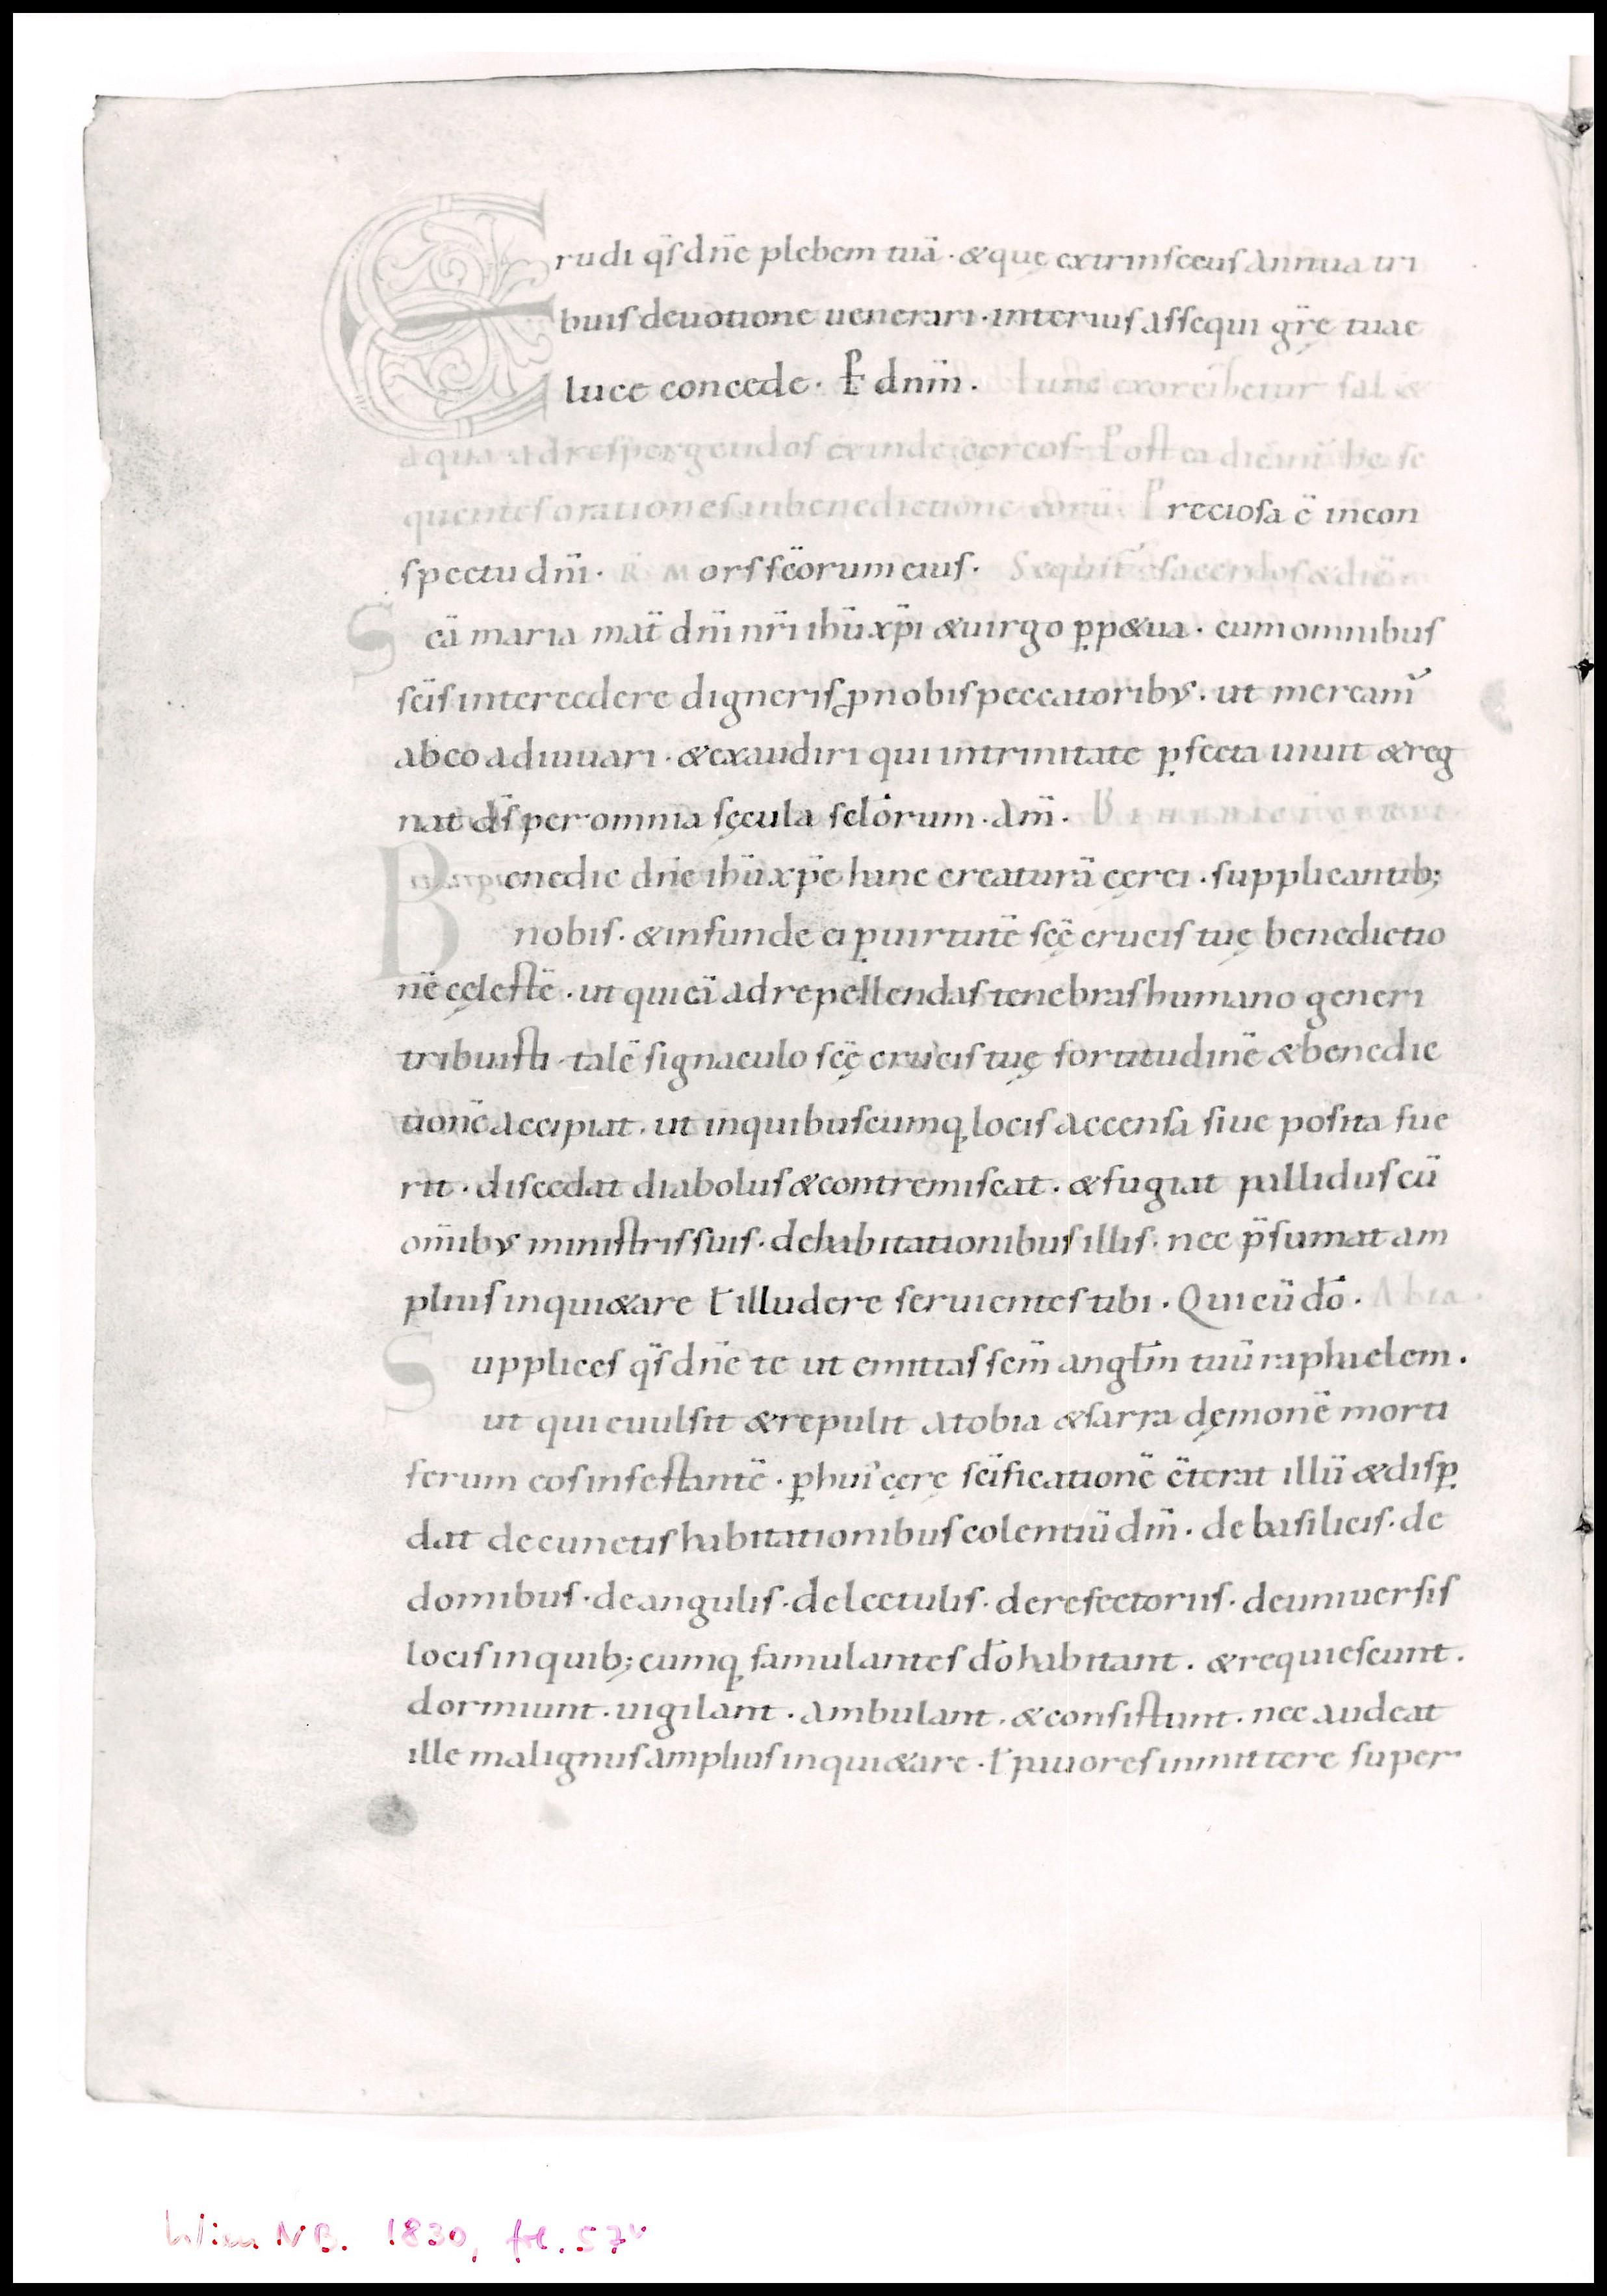 Erudi q̄s dn̄e plebem tuā · & quę extrinsecus annua tri
buis deuotione uenerari · interius assequi gr̄ę tuae
luce concede · P̄ dnm̄ · Tunc exorcizetur sal &
aqua ad respergendos exinde cereos · Postea dicant̄ hę se
quentes orationes in benedictione eorū · Preciosa ē in con
spectu dnī · R̄ Mors sc̄orum eius · Sequit̄ sacerdos & dicat
Sc̄a maria mat̄ dnī nr̄i ihū xp̄i & uirgo ꝑp&ua · cum omnibus
sc̄is intercedere digneris ꝓ nobis peccatoribus · ut meream̄
ab eo adiuuari · & exaudiri qui in trinitate ꝑfecta uiuit & reg
nat ds̄ per omnia sęcula sclorum · Am̄ ·
Benedic dn̄e ihū xp̄e hanc creaturā cęrei · supplicantib;
nobis · & infunde ei ꝑ uirtutē sc̄ę crucis tuę benedictio
nē cęlestē · ut qui eā ad repellendas tenebras humano generi
tribuisti · talē signaculo sc̄ę crucis tuę fortitudinē & benedic
tionē accipiat · ut in quibuscumq; locis accensa siue posita fue
rit · discedat diabolus & contremiscat · & fugiat pallidus cū
om̄ibus ministris suis · de habitationibus illis · nec p̄sumat am
plius inqui&are ł illudere seruientes tibi · Qui cū dō ·
Supplices q̄s dn̄e te ut emittas scm̄ angłm tuū raphaelem ·
ut qui euulsit & repulit a tobia & sarra dęmonē morti
ferum eos infestantē · ꝑ hui' cęrę sc̄ificationē c̄terat illū & disꝑ
dat de cunctis habitationibus colentiū dm̄ · de basilicis · de
domibus · de angulis · de lectulis · de refectoriis · de uniuersis
locis in quib; cumq; famulantes dō habitant · & requiescunt ·
dormiunt · uigilant · ambulant · & consistunt · nec audeat
ille malignus amplius inqui&are · ł pauores inmittere super
Wien NB. 1830, fol. 57v